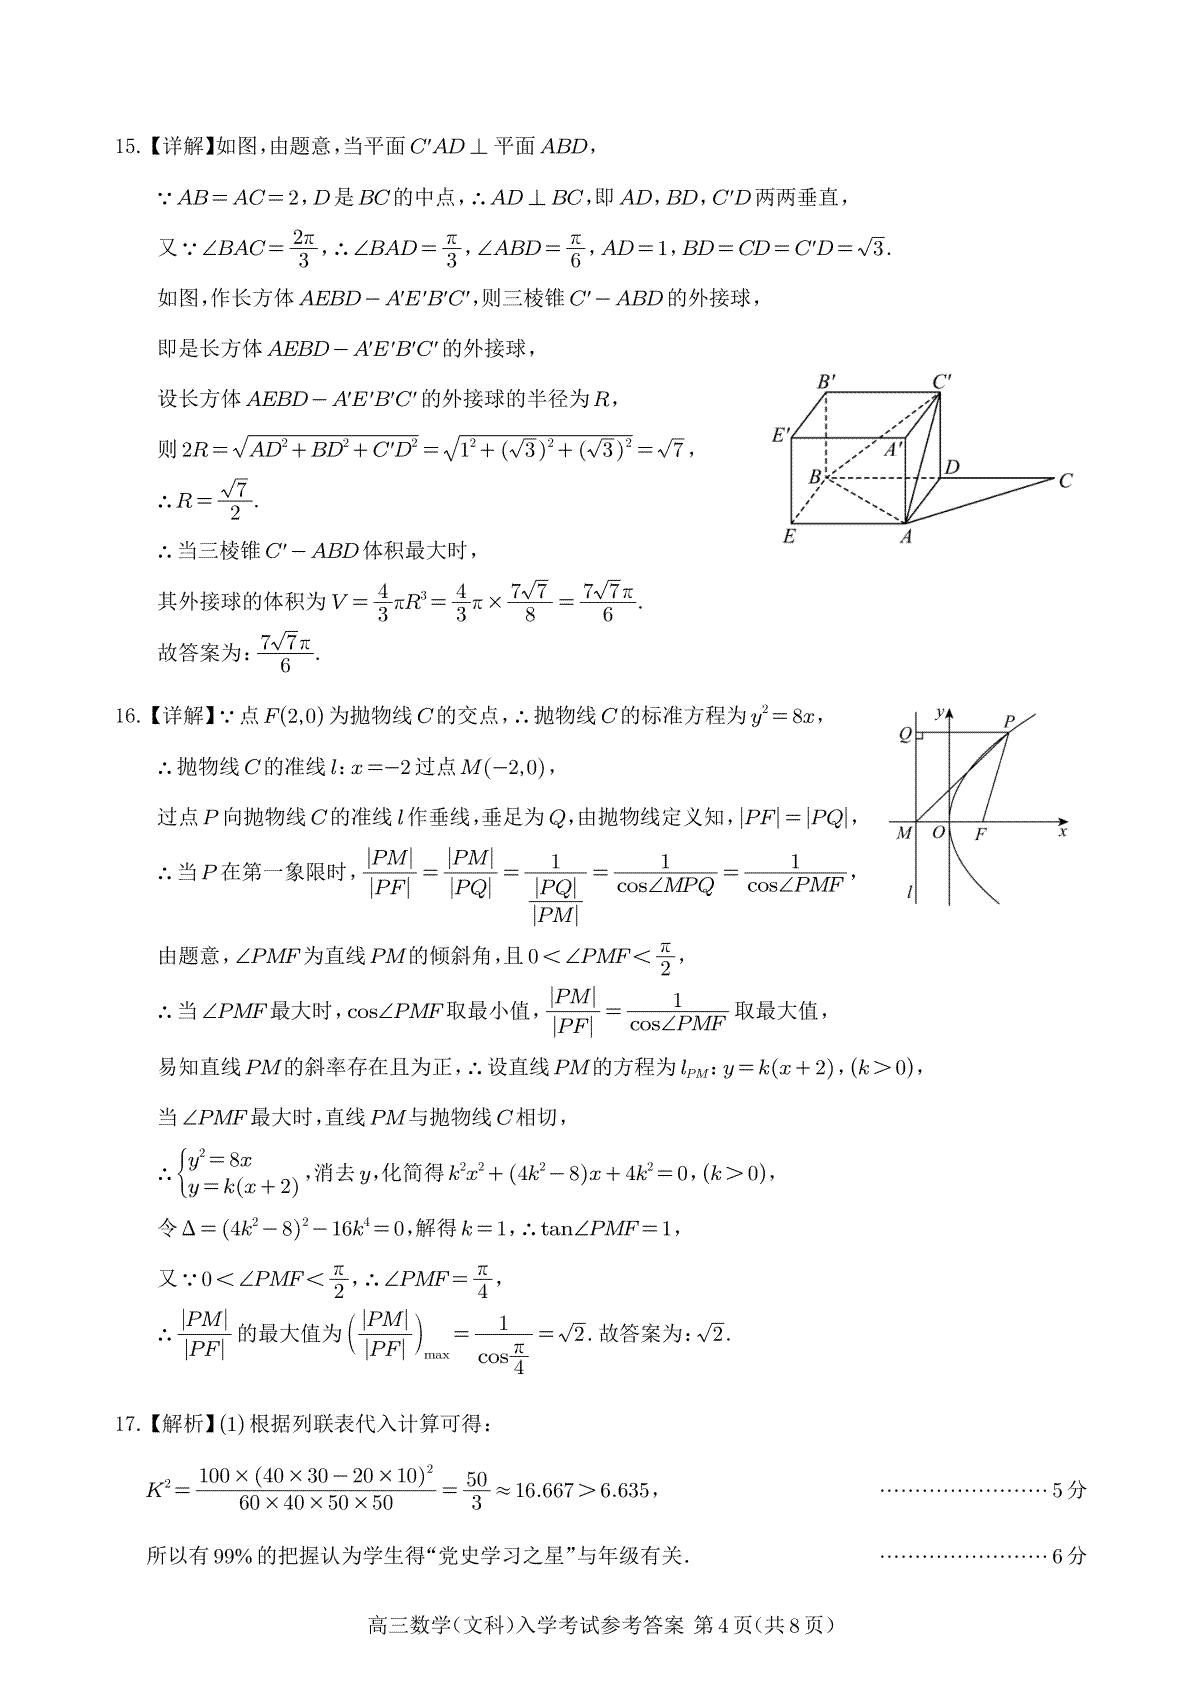 15.【详解】如图,由题意,当平面 C′AD ⊥ 平面 ABD,
∵ AB = AC = 2, D 是 BC 的中点,∴ AD ⊥ BC,即 AD, BD, C′D 两两垂直,
又∵ ∠BAC = 2π/3,∴ ∠BAD = π/3, ∠ABD = π/6, AD = 1, BD = CD = C′D = √3.
如图,作长方体 AEBD − A′E′B′C′,则三棱锥 C′ − ABD 的外接球,
即是长方体 AEBD − A′E′B′C′ 的外接球,
设长方体 AEBD − A′E′B′C′ 的外接球的半径为 R,
则 2R = √(AD² + BD² + C′D²) = √(1² + (√3)² + (√3)²) = √7,
∴ R = √7/2.
∴ 当三棱锥 C′ − ABD 体积最大时,
其外接球的体积为 V = 4/3 πR³ = 4/3 π × 7√7/8 = 7√7π/6.
故答案为: 7√7π/6.
B′ C′
E′ A′
B D C
E A
16.【详解】∵ 点 F(2,0) 为抛物线 C 的交点,∴ 抛物线 C 的标准方程为 y² = 8x,
∴ 抛物线 C 的准线 l: x = −2 过点 M(−2,0),
过点 P 向抛物线 C 的准线 l 作垂线,垂足为 Q,由抛物线定义知, |PF| = |PQ|,
∴ 当 P 在第一象限时, |PM|/|PF| = |PM|/|PQ| = 1/(|PQ|/|PM|) = 1/cos∠MPQ = 1/cos∠PMF,
由题意, ∠PMF 为直线 PM 的倾斜角,且 0 < ∠PMF < π/2,
∴ 当 ∠PMF 最大时, cos∠PMF 取最小值, |PM|/|PF| = 1/cos∠PMF 取最大值,
易知直线 PM 的斜率存在且为正,∴ 设直线 PM 的方程为 l_PM: y = k(x + 2), (k > 0),
当 ∠PMF 最大时,直线 PM 与抛物线 C 相切,
∴ {y² = 8x
y = k(x + 2) ,消去 y,化简得 k²x² + (4k² − 8)x + 4k² = 0, (k > 0),
令 Δ = (4k² − 8)² − 16k⁴ = 0,解得 k = 1,∴ tan∠PMF = 1,
又∵ 0 < ∠PMF < π/2,∴ ∠PMF = π/4,
∴ |PM|/|PF| 的最大值为 (|PM|/|PF|)max = 1/cos(π/4) = √2. 故答案为: √2.
y P
Q
M O F x
l
17.【解析】(1) 根据列联表代入计算可得:
K² = 100 × (40 × 30 − 20 × 10)²/(60 × 40 × 50 × 50) = 50/3 ≈ 16.667 > 6.635, ························ 5 分
所以有 99% 的把握认为学生得“党史学习之星”与年级有关. ························ 6 分
高三数学(文科)入学考试参考答案 第 4 页(共 8 页)